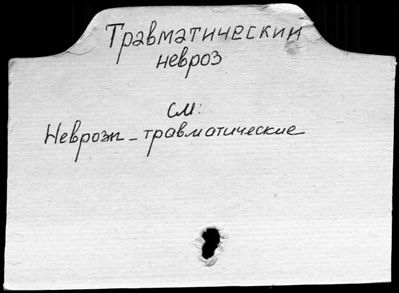 Травматический
невроз
см:
Неврозы - травматические